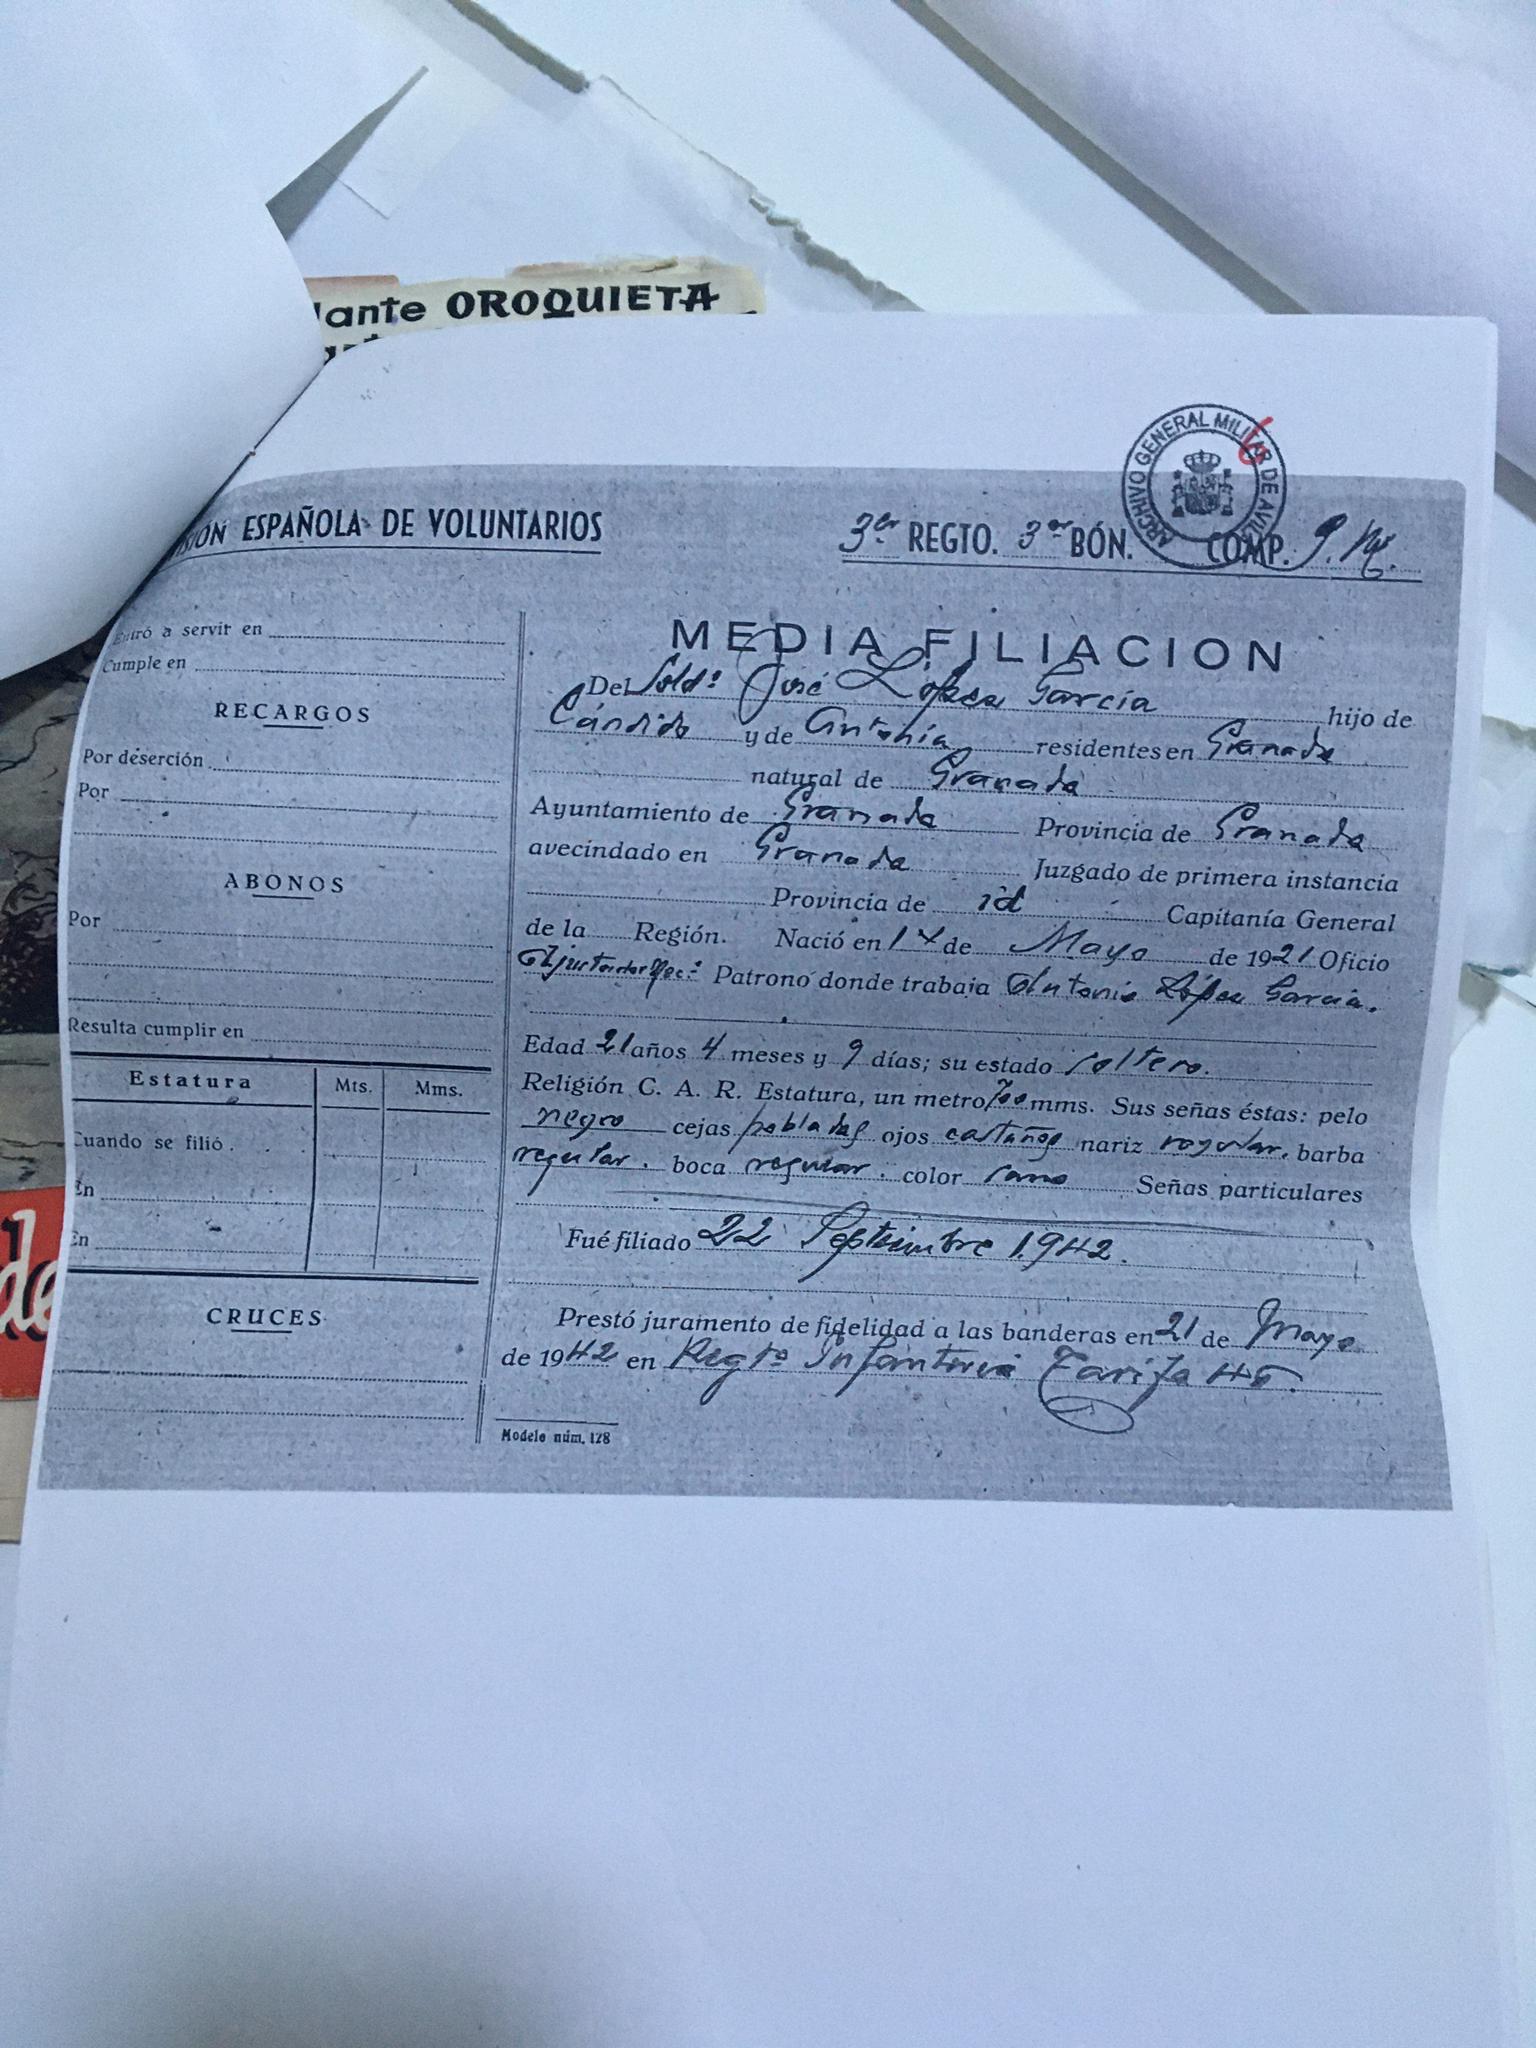 lante OROQUIETA
ARCHIVO GENERAL MILITAR DE AVILA
6
ISION ESPAÑOLA DE VOLUNTARIOS
3er REGTO. 3er BÓN. COMP. 9.
Entró a servir en
Cumple en
RECARGOS
Por deserción
Por
ABONOS
Por
Resulta cumplir en
Estatura Mts. Mms.
Cuando se filió.
En
En
CRUCES
MEDIA FILIACION
Del Soldº José López García hijo de
Cándido y de Antonia residentes en Granada
natural de Granada
Ayuntamiento de Granada Provincia de Granada
avecindado en Granada Juzgado de primera instancia
Provincia de id Capitanía General
de la Región. Nació en de Mayo de 1921 Oficio
Ajustador Mec.º Patrono donde trabaja Antonio López García.
Edad 21 años 4 meses y 9 días; su estado soltero.
Religión C. A. R. Estatura, un metro 700 mms. Sus señas éstas: pelo
negro cejas pobladas ojos castaños nariz regular, barba
regular. boca regular. color sano Señas particulares
Fué filiado 22 Septiembre 1.942.
Prestó juramento de fidelidad a las banderas en 21 de Mayo
de 1942 en Regtº Infantería Tarifa
Modelo núm. 128